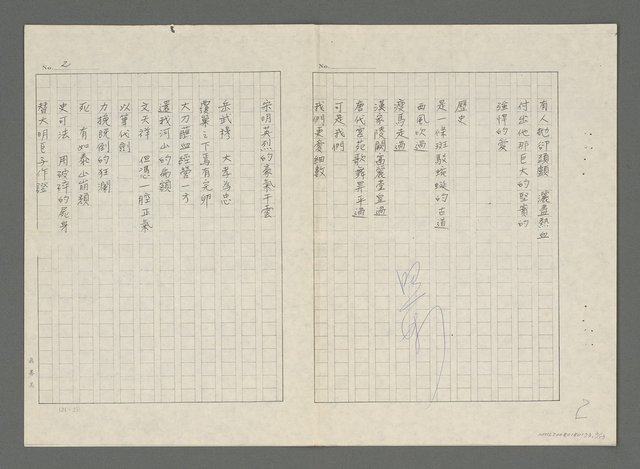 有人拋卻頭顱 灑盡熱血
付出他那巨大的堅實的
強悍的愛
歷史
是一條斑駁蜿蜒的古道
西風吹過
瘦馬走過
漢家陵闕萬麗臺宜過
唐代宮苑歌舞昇平過
可是我們
我們更愛細數
No. 2
宋明英烈的豪氣干雲
岳武穆 大孝為忠
覆巢之下焉有完卵
大刀蘸血經營一方
還我河山的匾額
文天祥 但憑一腔正氣
以筆代劍
力挽既倒的狂瀾
死 有如泰山崩頹
史可法 用破碎的屍身
替大明臣子作證
No.
2